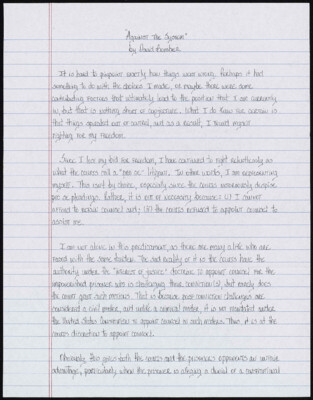 "Against The System"
by
It is hard to pinpoint exactly how things went wrong. Perhaps it had
something to do with the choices I made, or maybe there were some
contributing factors that ultimately lead to the position that I am currently
in, but that is nothing short of conjecture. What I do know for certain is
that things spiraled out of control, and as a result, I found myself
fighting for my freedom.
Since I lost my bid for freedom, I have continued to fight relentlessly as
what the courts call a "pro se" litigant. In other words, I am representing
myself. This isn't by choice, especially since the courts notoriously despise
pro se pleadings. Rather, it is out of necessity because: (i) I cannot
afford to retain counsel and; (ii) the courts refused to appoint counsel to
assist me.
I am not alone in this predicament, as there are many alike who are
faced with the same burden. The sad reality of it is the courts have the
authority under the "interest of justice" doctrine to appoint counsel for the
impoverished prisoner who is challenging their conviction(s), but rarely does
the court grant such motions. That is because post conviction challenges are
considered a civil matter, and unlike a criminal matter, it is not mandated under
the United States Constitution to appoint counsel in such matters. Thus, it is at the
courts discretion to appoint counsel.
Obviously this gives both the courts and the prisoner's opponents an unfair
advantage, particularly when the prisoner is attacking a denial of a constitutional